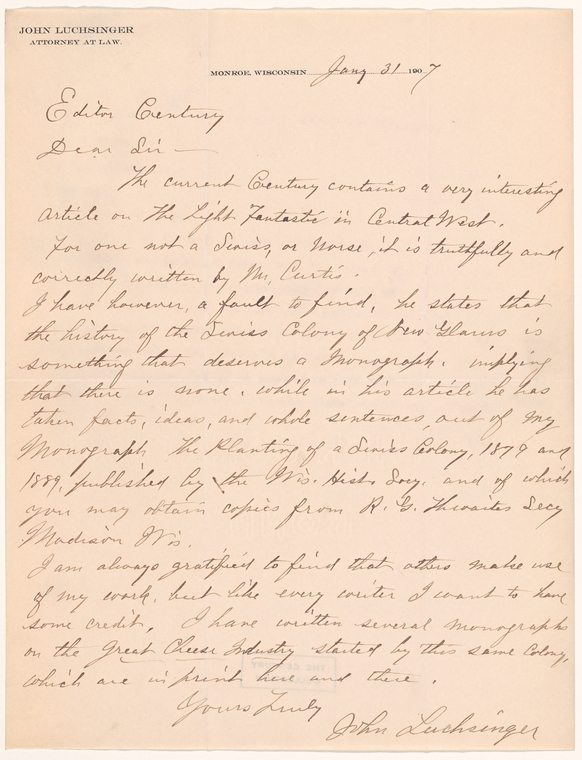 JOHN LUCHSINGER
ATTORNEY AT LAW.
MONROE, WISCONSIN Jany 31 1907
Editor Century
Dear Sir —
The current Century contains a very interesting
article on The Light Fantastic in Central West.
For one not a Swiss, or Norse, it is truthfully and
correctly written by Mr, Curtis.
I have however, a fault to find, he states that
the history of the Swiss Colony of New Glarus is
something that deserves a Monograph. implying
that there is none. while in his article he has
taken facts, ideas, and whole sentences, out of my
Monograph The Planting of a Swiss Colony, 1879 and
1889, published by the Wis. Hist. Socy. and of which
you may obtain copies from R. G. Thwaites Secy
Madison Wis.
I am always gratified to find that others make use
of my work, but like every writer I want to have
some credit. I have written several monographs
on the Great Cheese Industry started by this same Colony,
which are in print here and there.
Yours Truly
John Luchsinger